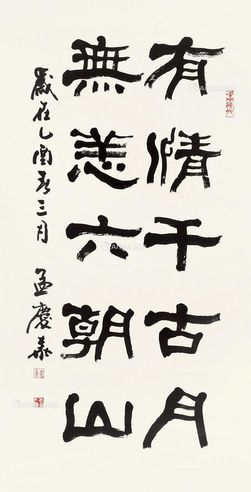 有情千古月
無恙六朝山
歲在乙酉春三月
孟慶泰